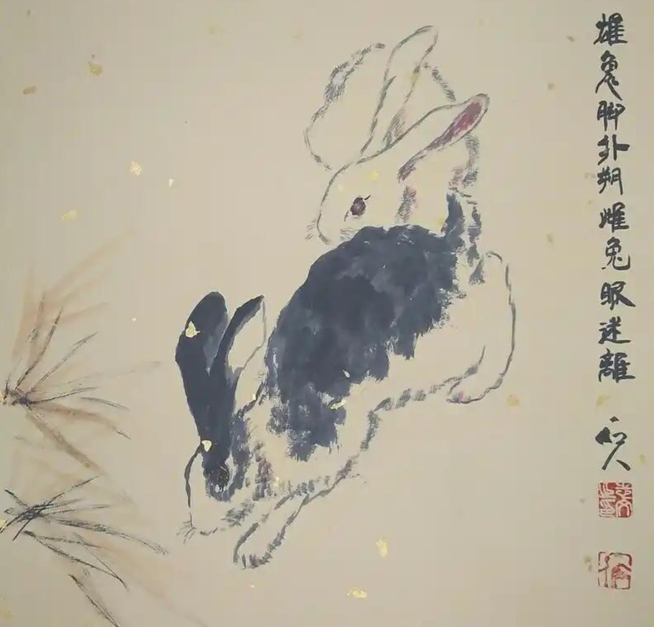 雄兔脚扑朔雌兔眼迷離